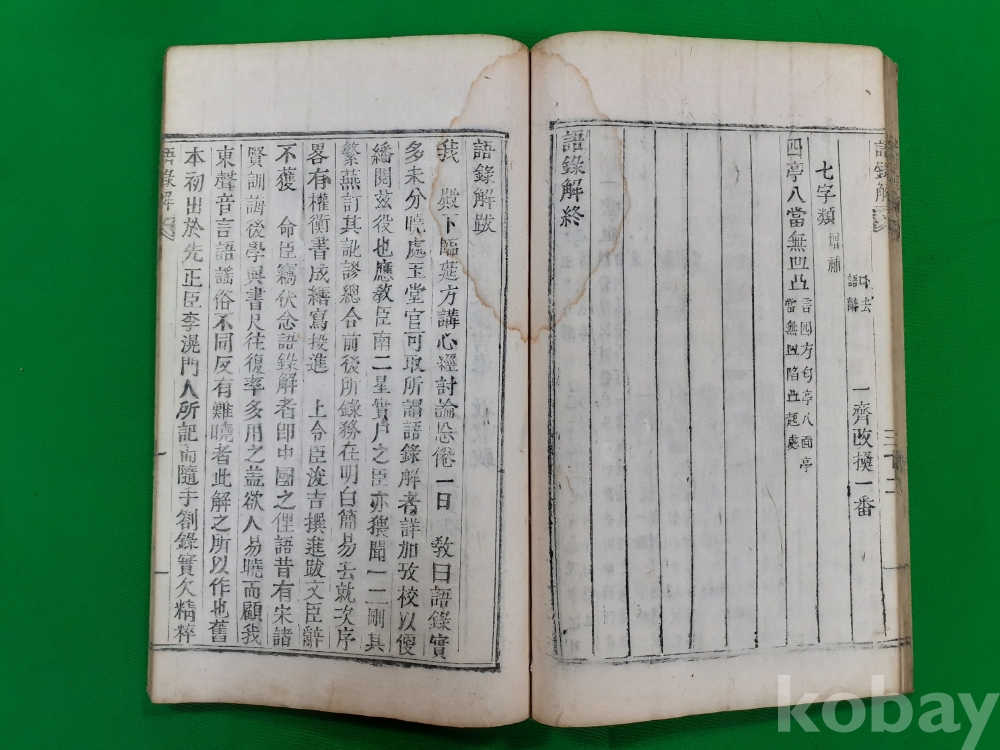 語錄解
一齊改換一番
七字類 增補
四亭八當無凹凸 言四方匀亭八面亭
當無凹陷凸起處
語錄解終
語錄解跋
我 殿下臨筵方講心經討論忘倦一日 敎曰語錄實
多未分曉處玉堂官可取所謂語錄解者詳加攷校以便
繙閱玆役也應敎臣南二星實尸之臣亦猥聞一二刪其
繁蕪訂其訛謬總合前後所錄務在明白簡易去就次序
畧有權衡書成繕寫投進 上令臣浚吉撰進跋文臣辭
不獲 命臣竊伏念語錄解者卽中國之俚語昔有宋諸
賢訓誨後學與書尺往復率多用之盖欲人易曉而顧我
東聲音言語謠俗不同反有難曉者此解之所以作也舊
本初出於先正臣李滉門人所記而隨手劄錄實欠精粹
語錄解
kobay